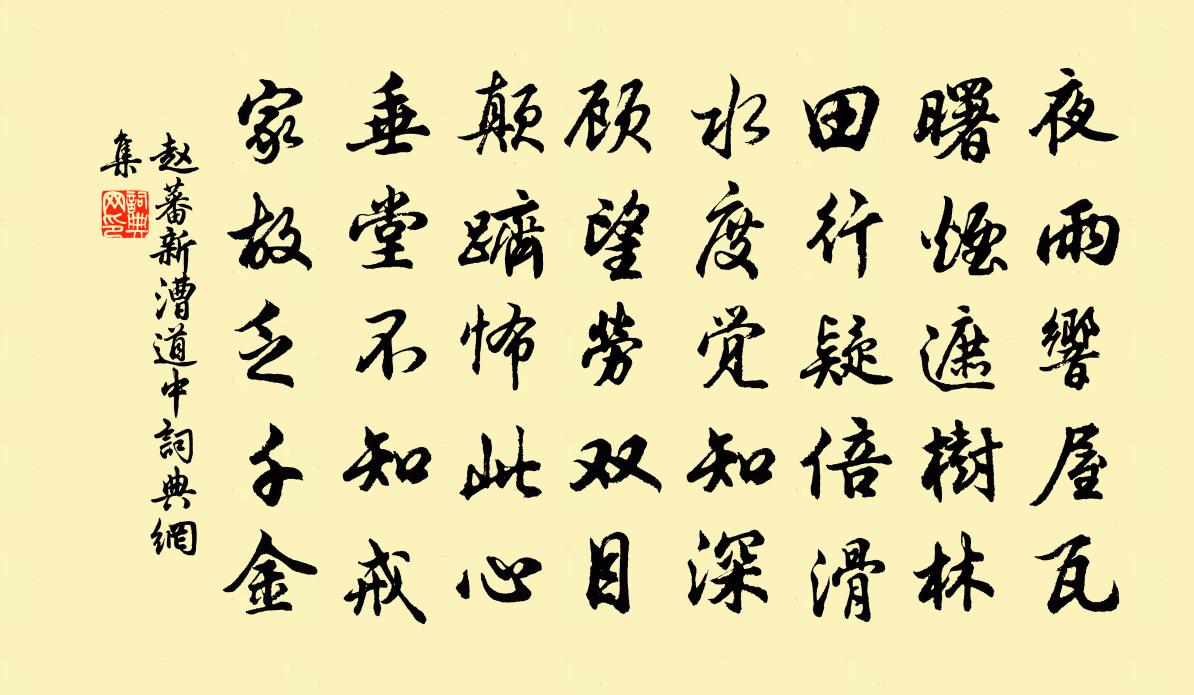 夜雨響屋瓦
曙煙遮樹林
田行疑倍滑
水度觉知深
顾望勞双目
顛躋怖此心
垂堂不知戒
家故乏千金
赵蕃新漕道中詞典網
集
詞典
网印